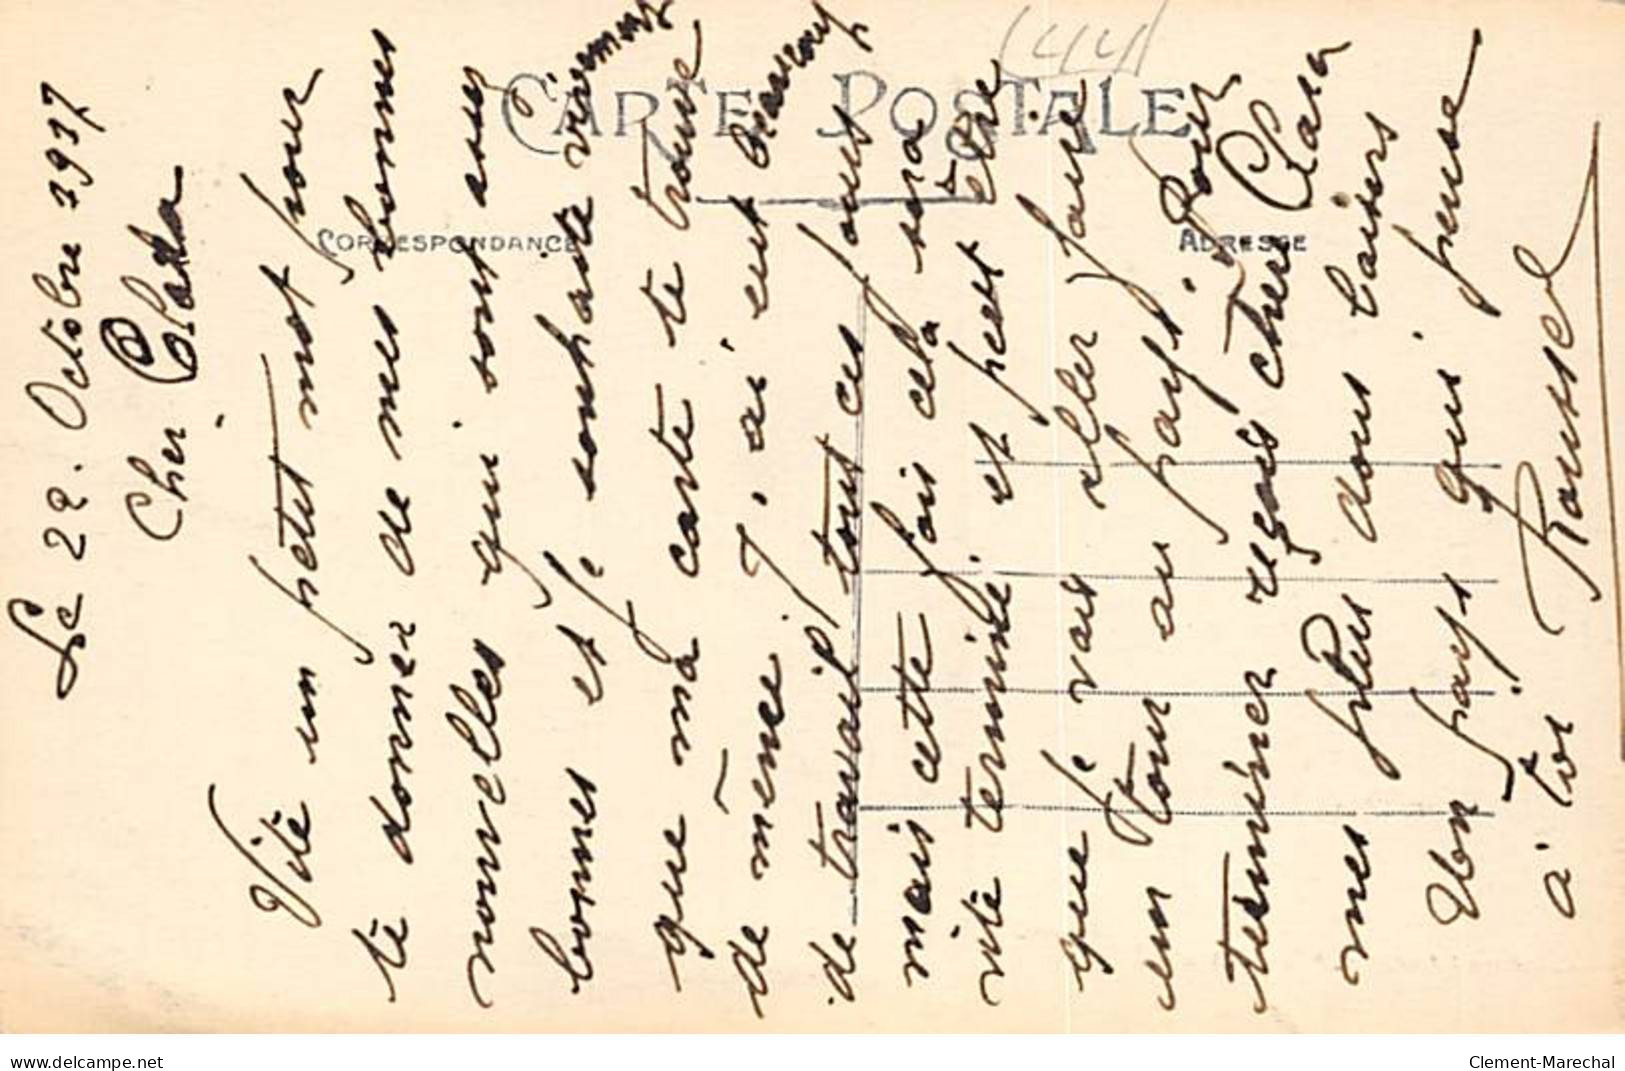 Le 22. Octobre 1937
Cher Clara
Vite un petit mot pour
te donner de mes bonnes
nouvelles qui sont assez
bonnes et je souhaite vivement
que ma carte te trouve
de même. J'ai eut beaucoup
de travail, tout ces jours
mais cette fois cela sera
vite terminé. et peut être
que je vais aller faire
un tour au pays. Pour
terminer reçois chere Clara
mes plus doux baisers
Un pays qui pense
à toi. Roussel
CARTE POSTALE
CORRESPONDANCE
ADRESSE
delcampe.net
Clement-Marechal